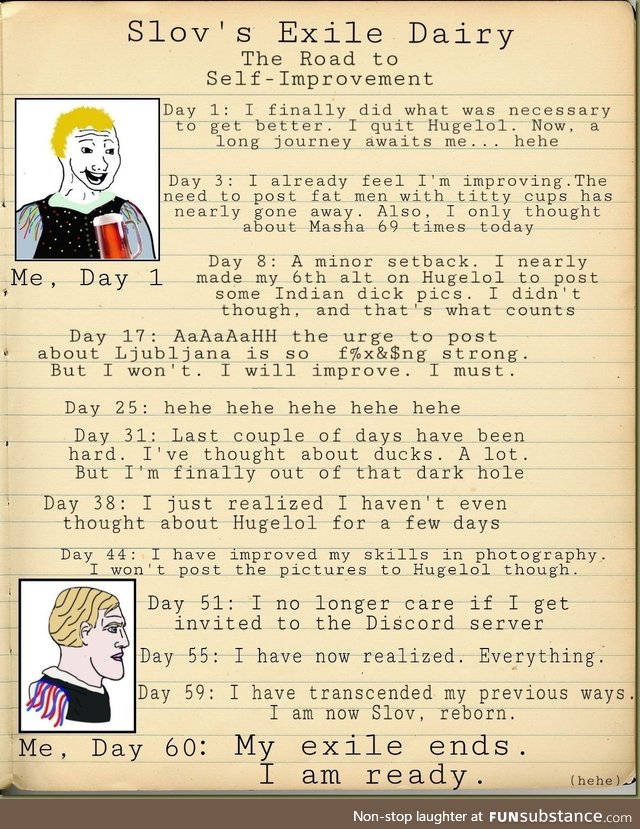 Slov's Exile Dairy
The Road to
Self-Improvement
Day 1: I finally did what was necessary
to get better. I quit Hugelol. Now, a
long journey awaits me... hehe
Day 3: I already feel I'm improving.The
need to post fat men with titty cups has
nearly gone away. Also, I only thought
about Masha 69 times today
Me, Day 1
Day 8: A minor setback. I nearly
made my 6th alt on Hugelol to post
some Indian dick pics. I didn't
though, and that's what counts
Day 17: AaAaAaHH the urge to post
about Ljubljana is so f%x&$ng strong.
But I won't. I will improve. I must.
Day 25: hehe hehe hehe hehe hehe
Day 31: Last couple of days have been
hard. I've thought about ducks. A lot.
But I'm finally out of that dark hole
Day 38: I just realized I haven't even
thought about Hugelol for a few days
Day 44: I have improved my skills in photography.
I won't post the pictures to Hugelol though.
Day 51: I no longer care if I get
invited to the Discord server
Day 55: I have now realized. Everything.
Day 59: I have transcended my previous ways.
I am now Slov, reborn.
Me, Day 60: My exile ends.
I am ready.
(hehe)
Non-stop laughter at FUNsubstance.com